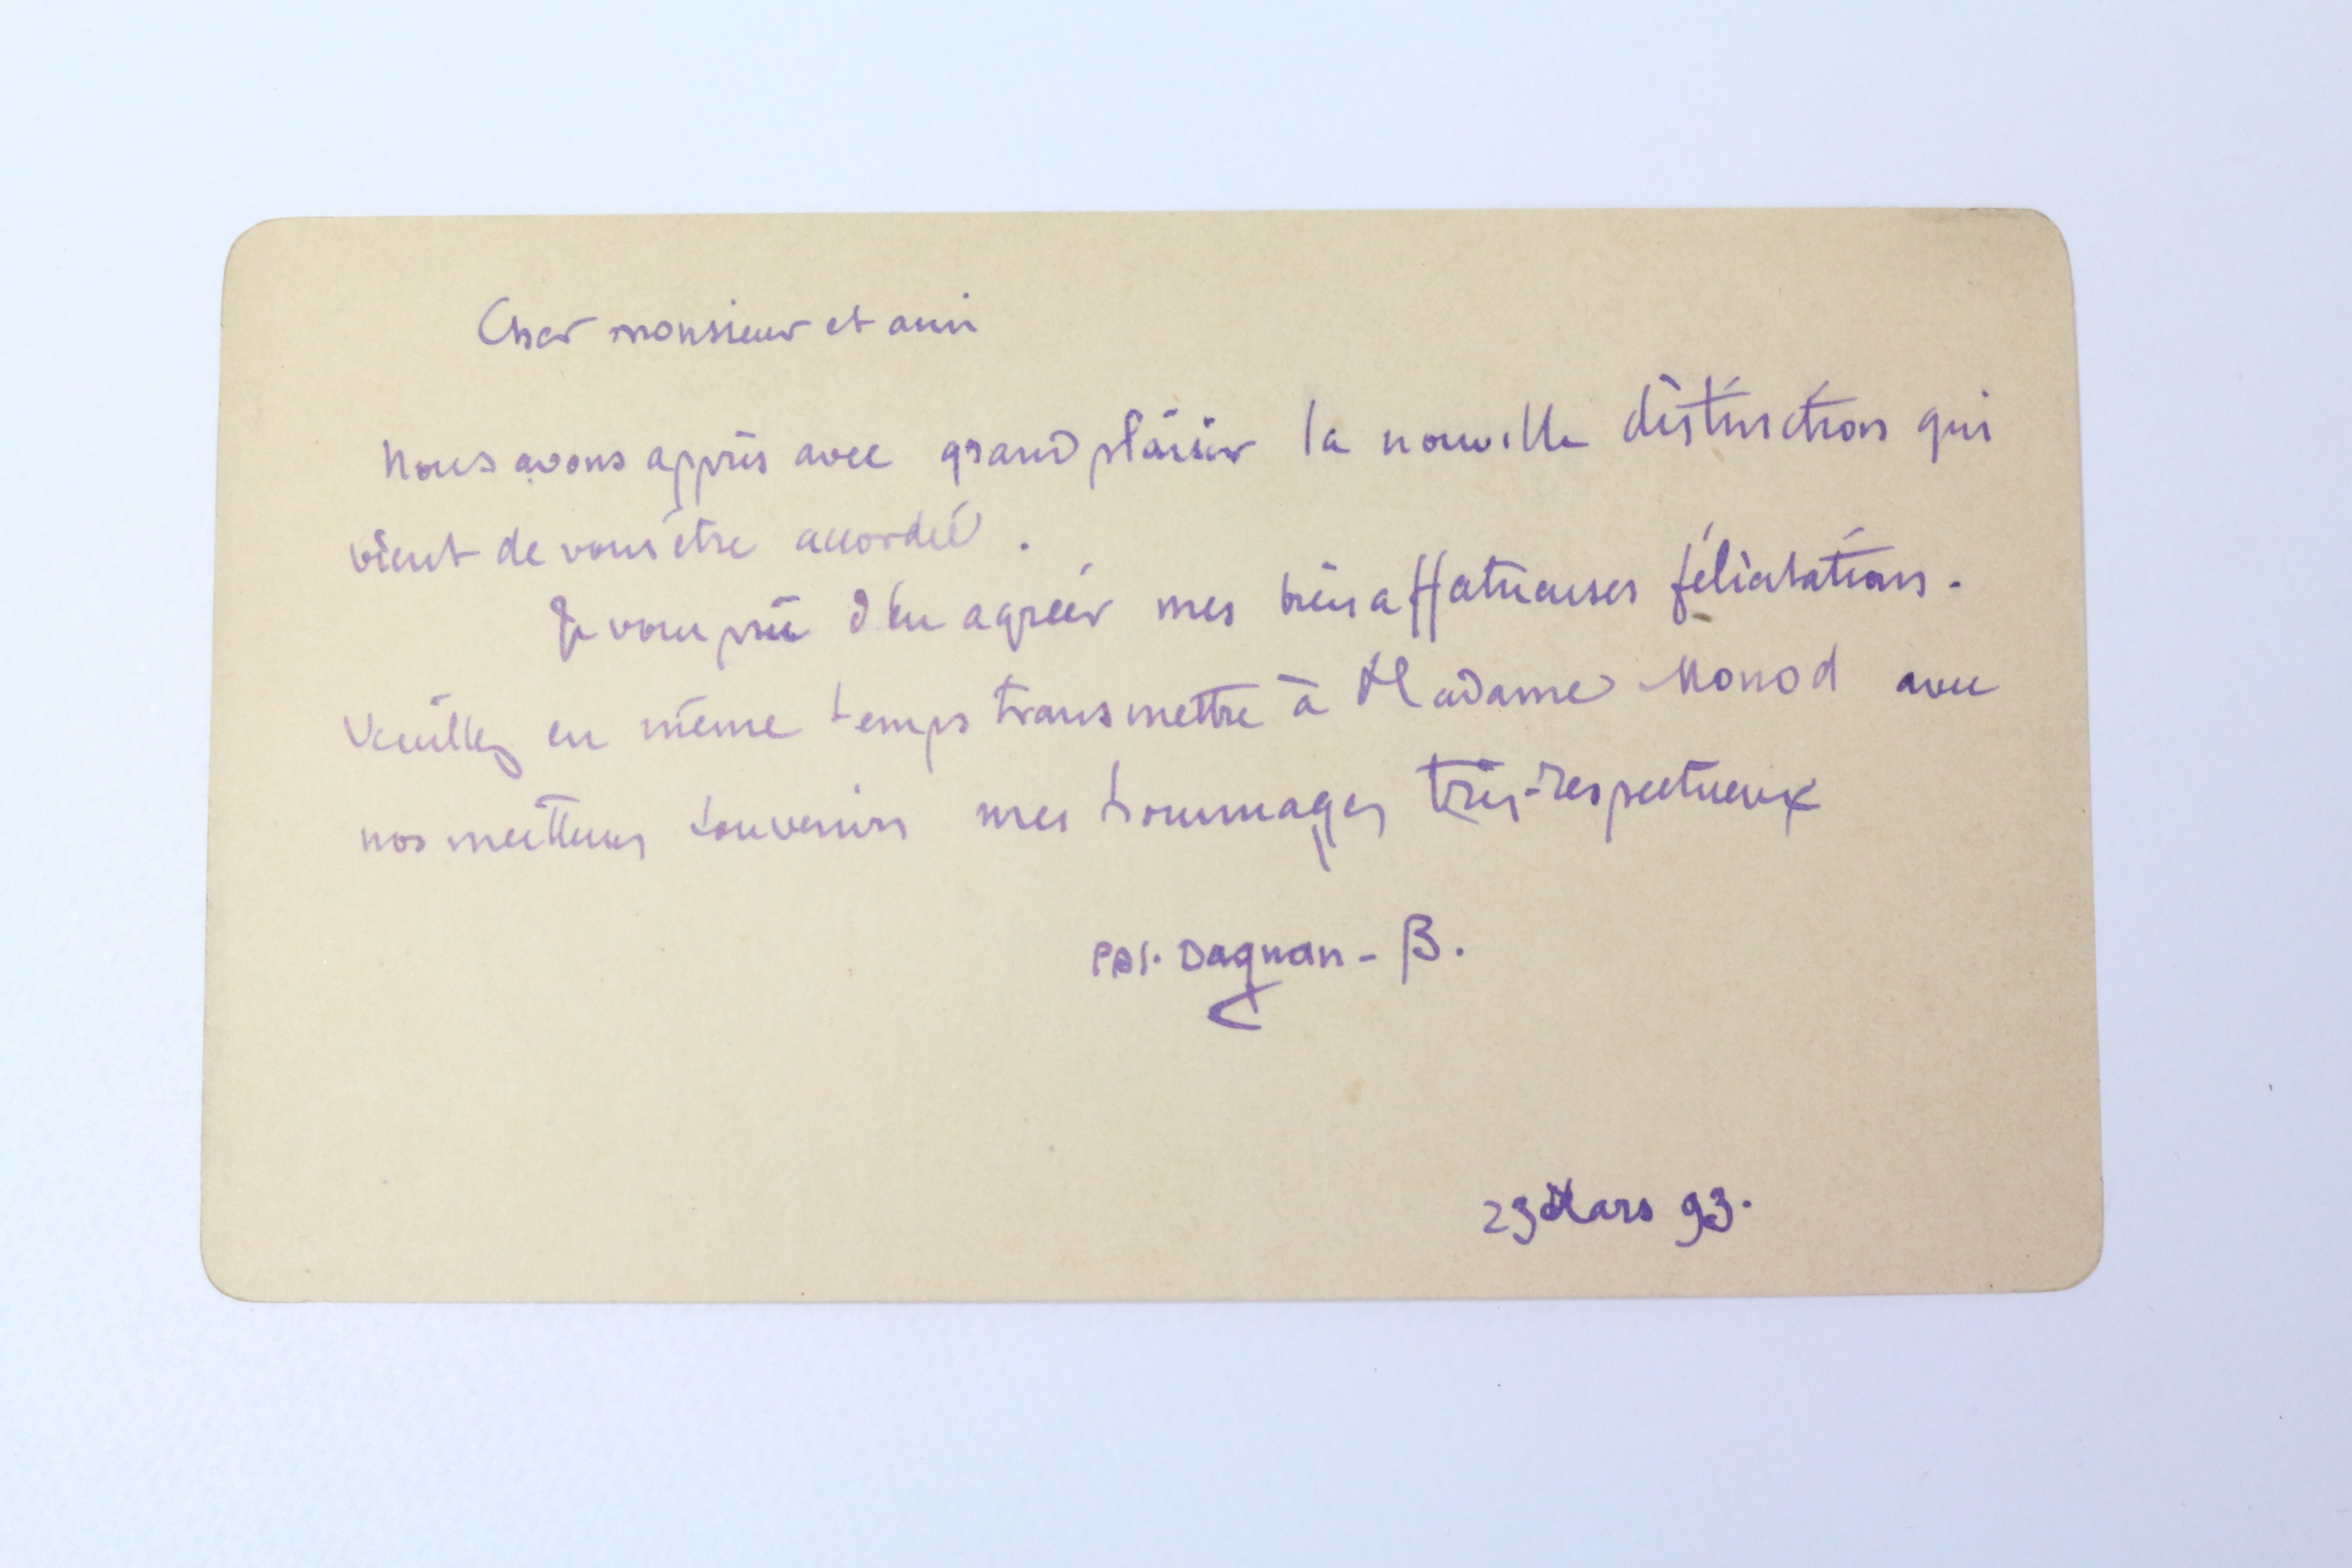 Cher monsieur et ami
Nous avons appris avec grand plaisir la nouvelle distinction qui
vient de vous être accordée.
Je vous prie d'en agréer mes bien affectueuses félicitations.
Veuillez en même temps transmettre à Madame Monod avec
nos meilleurs souvenirs mes hommages très-respectueux
PAJ. Dagnan-B.
29 Mars 93.